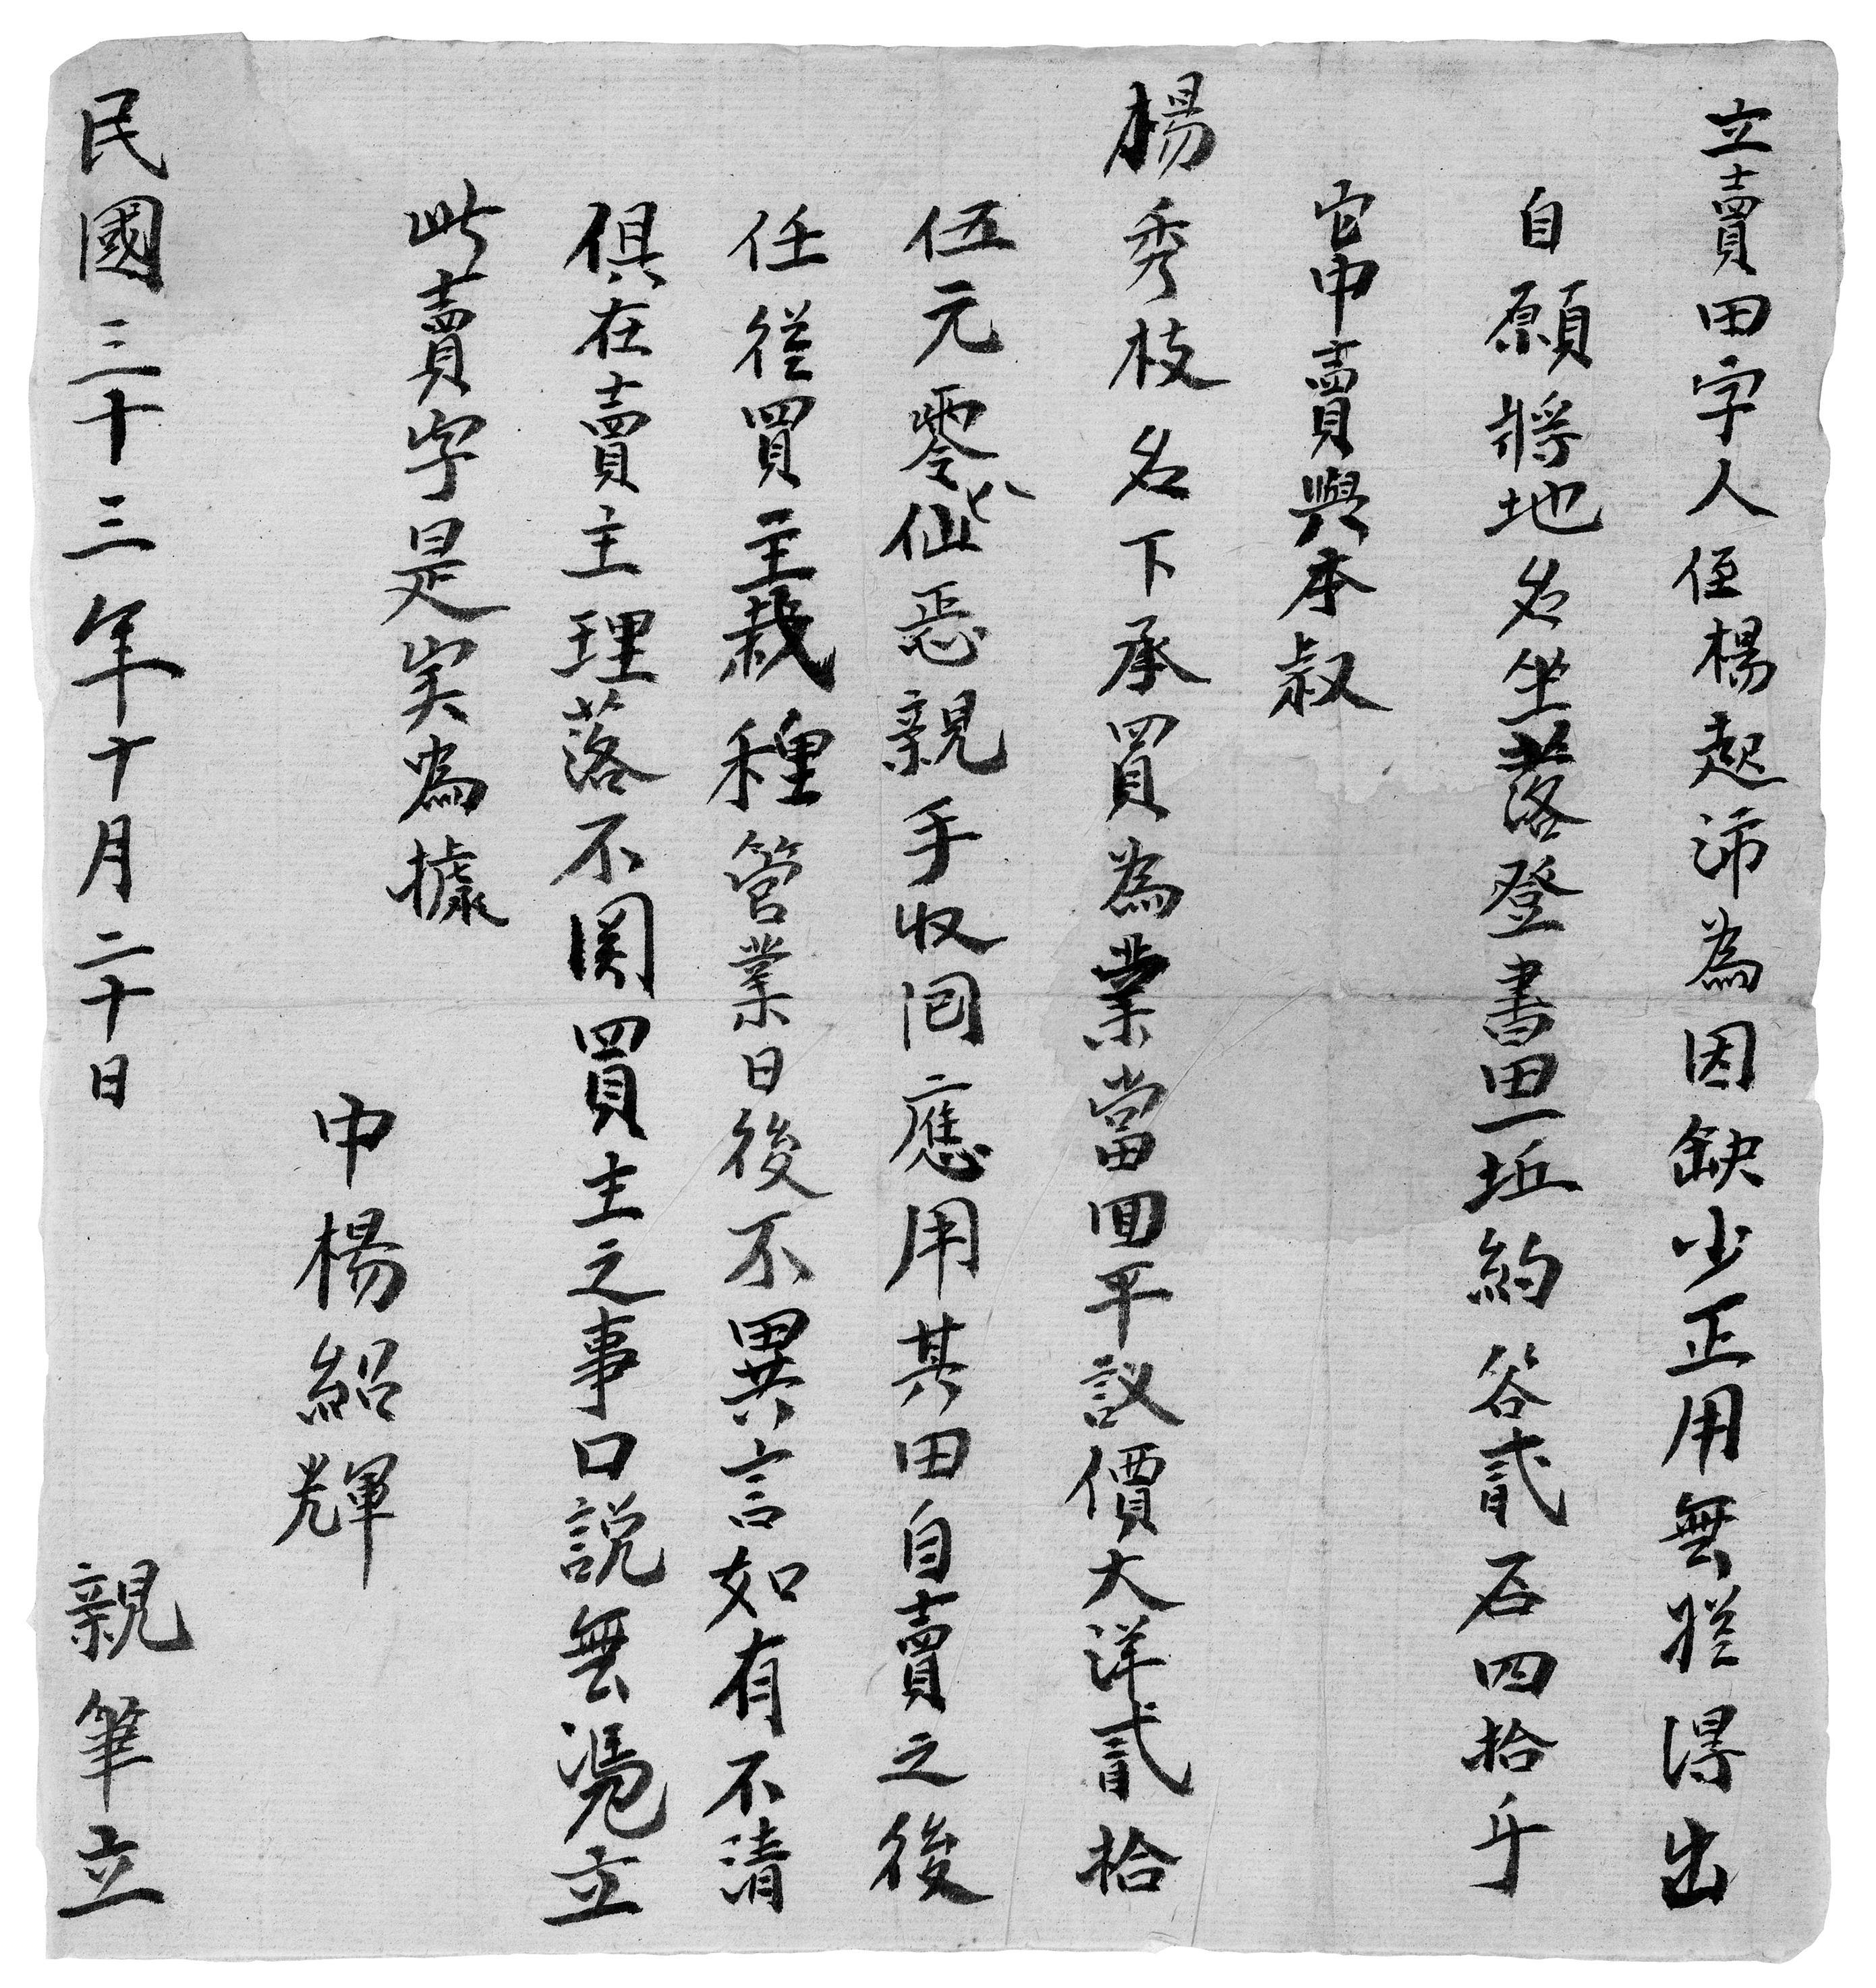 立賣田字人侄楊起沛為因缺少正用無從得出
自願將地名坐落登書田一坵約谷貳石四拾斤
它中賣與本叔
楊秀枝名下承買為業當面平議價大洋貳拾
伍元零七八仙惡親手收囘應用其田自賣之後
任從買主栽種管業日後不異言如有不清
俱在賣主理落不関買主之事口説無凴立
此賣字是实為據
中楊紹輝
民國三十三年十月二十日 親筆立